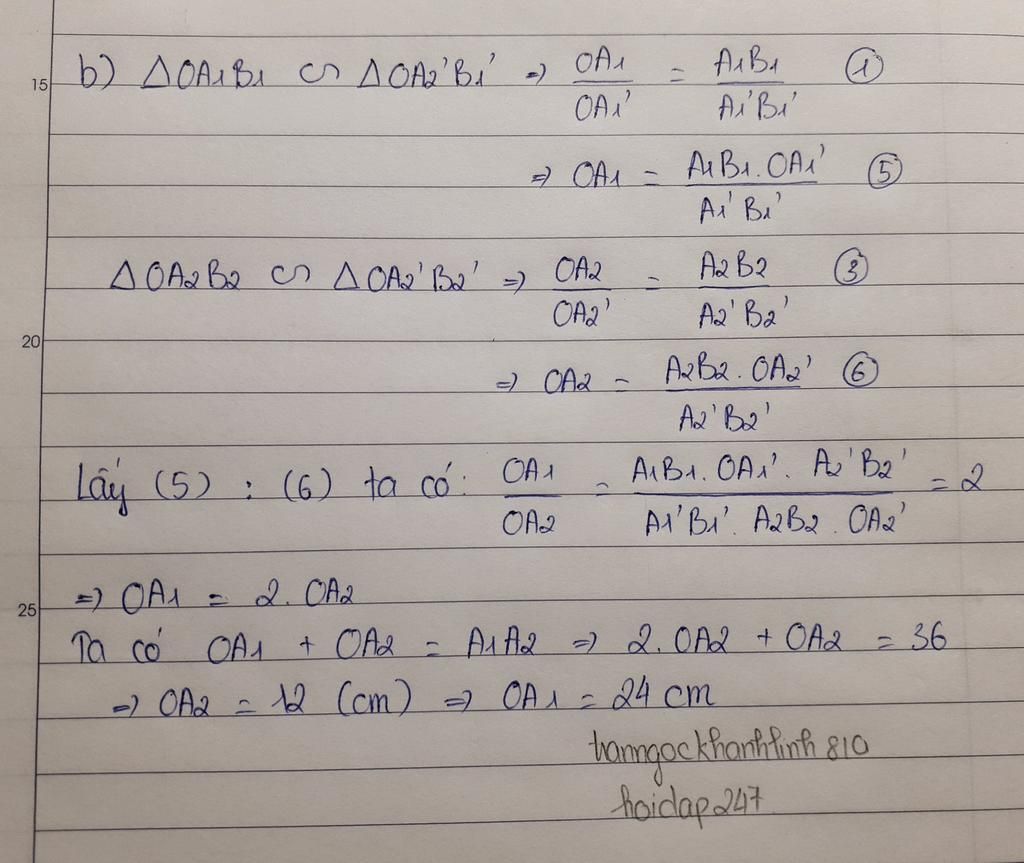 b) ΔOA1B1 ∽ ΔOA2'B1' => OA1/OA1' = A1B1/A1'B1' ①
15
=> OA1 = A1B1.OA1'/A1'B1' ⑤
ΔOA2B2 ∽ ΔOA2'B2' => OA2/OA2' = A2B2/A2'B2' ③
20
=> OA2 = A2B2.OA2'/A2'B2' ⑥
Lấy (5) : (6) ta có: OA1/OA2 = A1B1.OA1'.A2'B2'/A1'B1'.A2B2.OA2' = 2
=> OA1 = 2.OA2
25
Ta có OA1 + OA2 = A1A2 => 2.OA2 + OA2 = 36
=> OA2 = 12 (cm) => OA1 = 24 cm
tranngockhanhlinh810
hoidap247